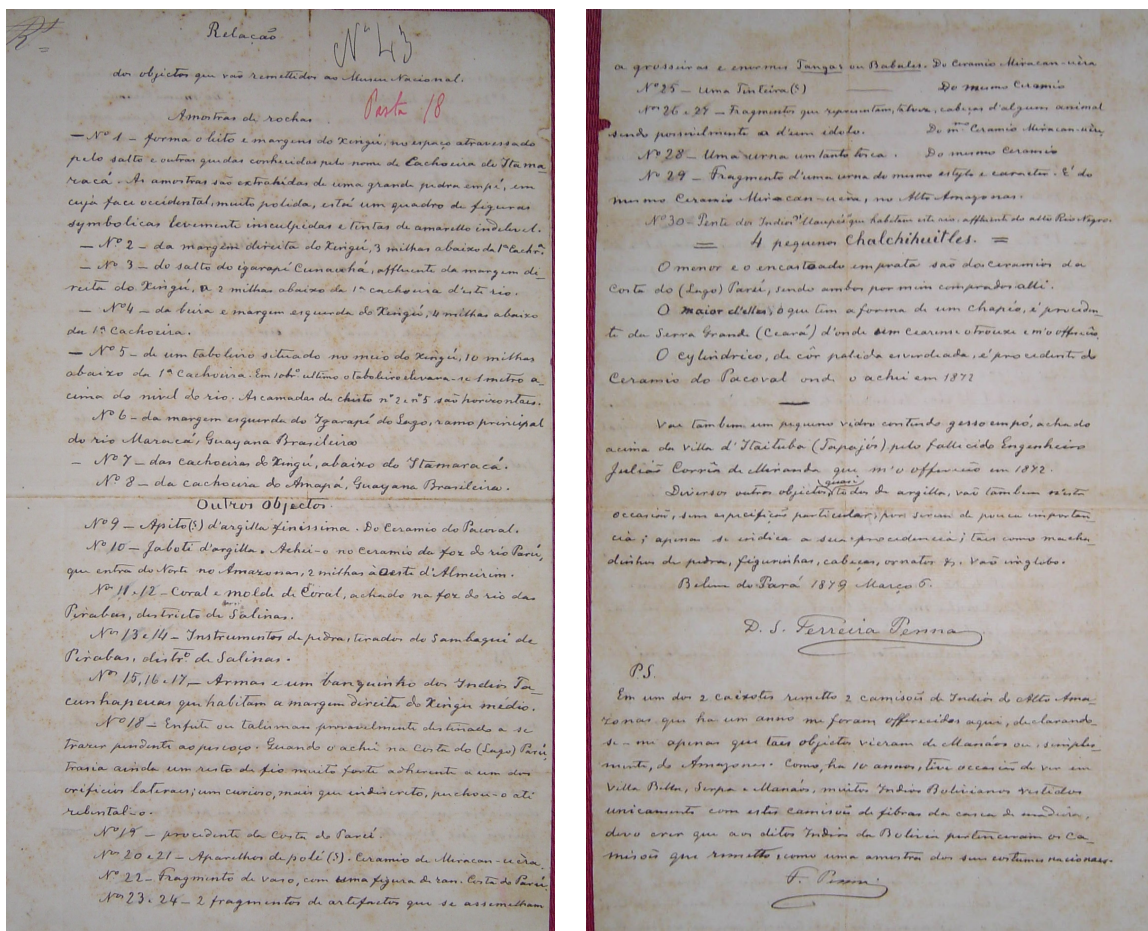 Relação
Nº 43
dos objectos que vão remettidos ao Museu Nacional.
Pasta 18
Amostras de rochas.
— Nº 1 – forma o leito e margens do Xingú, no espaço atravessado
pelo salto e outras quedas conhecidas pelo nome de Cachoeira de Itama-
racá. As amostras são extrahidas de uma grande pedra em pé, em
cuja face occidental, muito polida, está um quadro de figuras
symbolicas levemente insculpidas e tintas de amarello indelevel.
— Nº 2 – da margem direita do Xingú, 3 milhas abaixo da 1ª Cachrª.
— Nº 3 – do salto do igarapé Cunauahá, affluente da margem di-
reita do Xingú, a 2 milhas abaixo da 1ª cachoeira d'este rio.
— Nº 4 – da beira e margem esquerda do Xingú, 4 milhas abaixo
da 1ª Cachoeira.
— Nº 5 – de um taboleiro situado no meio do Xingú, 10 milhas
abaixo da 1ª Cachoeira. Em 8brº ultimo o taboleiro elevava-se 1 metro a-
cima do nivel do rio. As camadas de chisto nº 2 e nº 5 são horizontaes.
Nº 6 – da margem esquerda do Igarapé do Lago, ramo principal
do rio Maracá, Guayana Brasileira
– Nº 7 – das cachoeiras do Xingú, abaixo do Itamaracá.
– Nº 8 – da cachoeira do Amapá, Guayana Brasileira.
Outros Objectos.
Nº 9 – Apito (?) d'argilla finissima. Do Ceramio do Pacoval.
Nº 10 – Jaboti d'argilla. Achei-o no ceramio da foz do rio Parú,
que entra do Norte no Amazonas, 2 milhas à Oeste d'Almeirim.
Nº 11 e 12 – Coral e molde de Coral, achado na foz do rio das
Pirabas, districto de Salinas.
Nos 13 e 14 – Instrumentos de pedra, tirados do Sambaqui de
Pirabas, distrº. de Salinas.
Nos 15, 16 e 17, – Armas e um banquinho dos Indios Ta-
cunhapeuas que habitam a margem direita do Xingú médio.
Nº 18 – Enfeite ou talisman provavelmente destinado a se
trazer pendente ao pescoço. Quando o achei na Costa do (Lago) Parú,
trasia ainda um resto de fio muito forte adherente a um dos
orificios lateraes; um curioso, mais que indiscreto, puchou-o até
rebental-o.
Nº 19 – procedente da Costa do Parú.
Nos 20 e 21 – Aparelhos de polé (?). Ceramio de Miracan-uêra.
Nº 22 – Fragmento de vaso, com uma figura de ran. Costa do Parú.
Nos 23 e 24 – 2 fragmentos de artefactos que se assemelham
a grosseiras e enormes Tangas ou Babales. Do Ceramio Miracan-uêra
Nº 25 – Uma Tinteira (?) Do mesmo Ceramio
Nos 26 e 27 – Fragmentos que representam, talvez, cabeças d'algum animal
sendo possivelmente a d'um idolo. Do mmº Ceramio Miracan-uêra,
Nº 28 – Uma urna um tanto tosca. Do mesmo Ceramio
Nº 29 – Fragmento d'uma urna do mesmo estylo e caracter. É do
mesmo Ceramio Miracan-uêra, no Alto Amazonas.
Nº 30 – Pente dos Indios "Uaupés" que habitam este rio, affluente do alto Rio Negro.
= 4 pequenos Chalchihuitles. =
O menor e o encastoado em prata são dos ceramios da
Costa do (Lago) Parú, sendo ambos por mim comprados alli.
O maior d'elles, o que tem a forma de um chapéo, é proceden-
te da Serra Grande (Ceará) d'onde um cearense o trouxe e m'o offereceo.
O cylindrico, de côr palida esverdeada, é procedente do
Ceramio do Pacoval onde o achei em 1872
Vae tambem um pequeno vidro contendo gesso em pó, achado
acima da Villa d'Itaituba (Tapajós) pelo fallecido Engenheiro
Julião Corrêa de Miranda que m'o offereceo em 1872.
quasi
Diversos outros objectos, todos de argilla, vão tambem n'esta
occasião, sem especificação particular, por serem de pouca importan-
cia; apenas se indica a sua procedencia; taes como macha-
dinhos de pedra, figurinhas, cabeças, ornatos &. Vão in globo.
Belem do Pará 1879 Março 6.
D. S. Ferreira Penna
P.S.
Em um dos 2 caixotes remetto 2 camisões de Indios do Alto Ama-
zonas que ha um anno me foram offerecidos aqui, declarando-
se-me apenas que taes objectos vieram de Manáos ou, simples-
mente, do Amazonas. Como, ha 10 annos, tive occasião de ver em
Villa Bella, Serpa e Manáos, muitos Indios Bolivianos vestidos
unicamente com estes camisões de fibras da casca de madeira,
devo crer que aos ditos Indios da Bolivia pertenceram os Ca-
misões que remetto, como uma amostra dos seus costumes nacionaes.
F. Penna